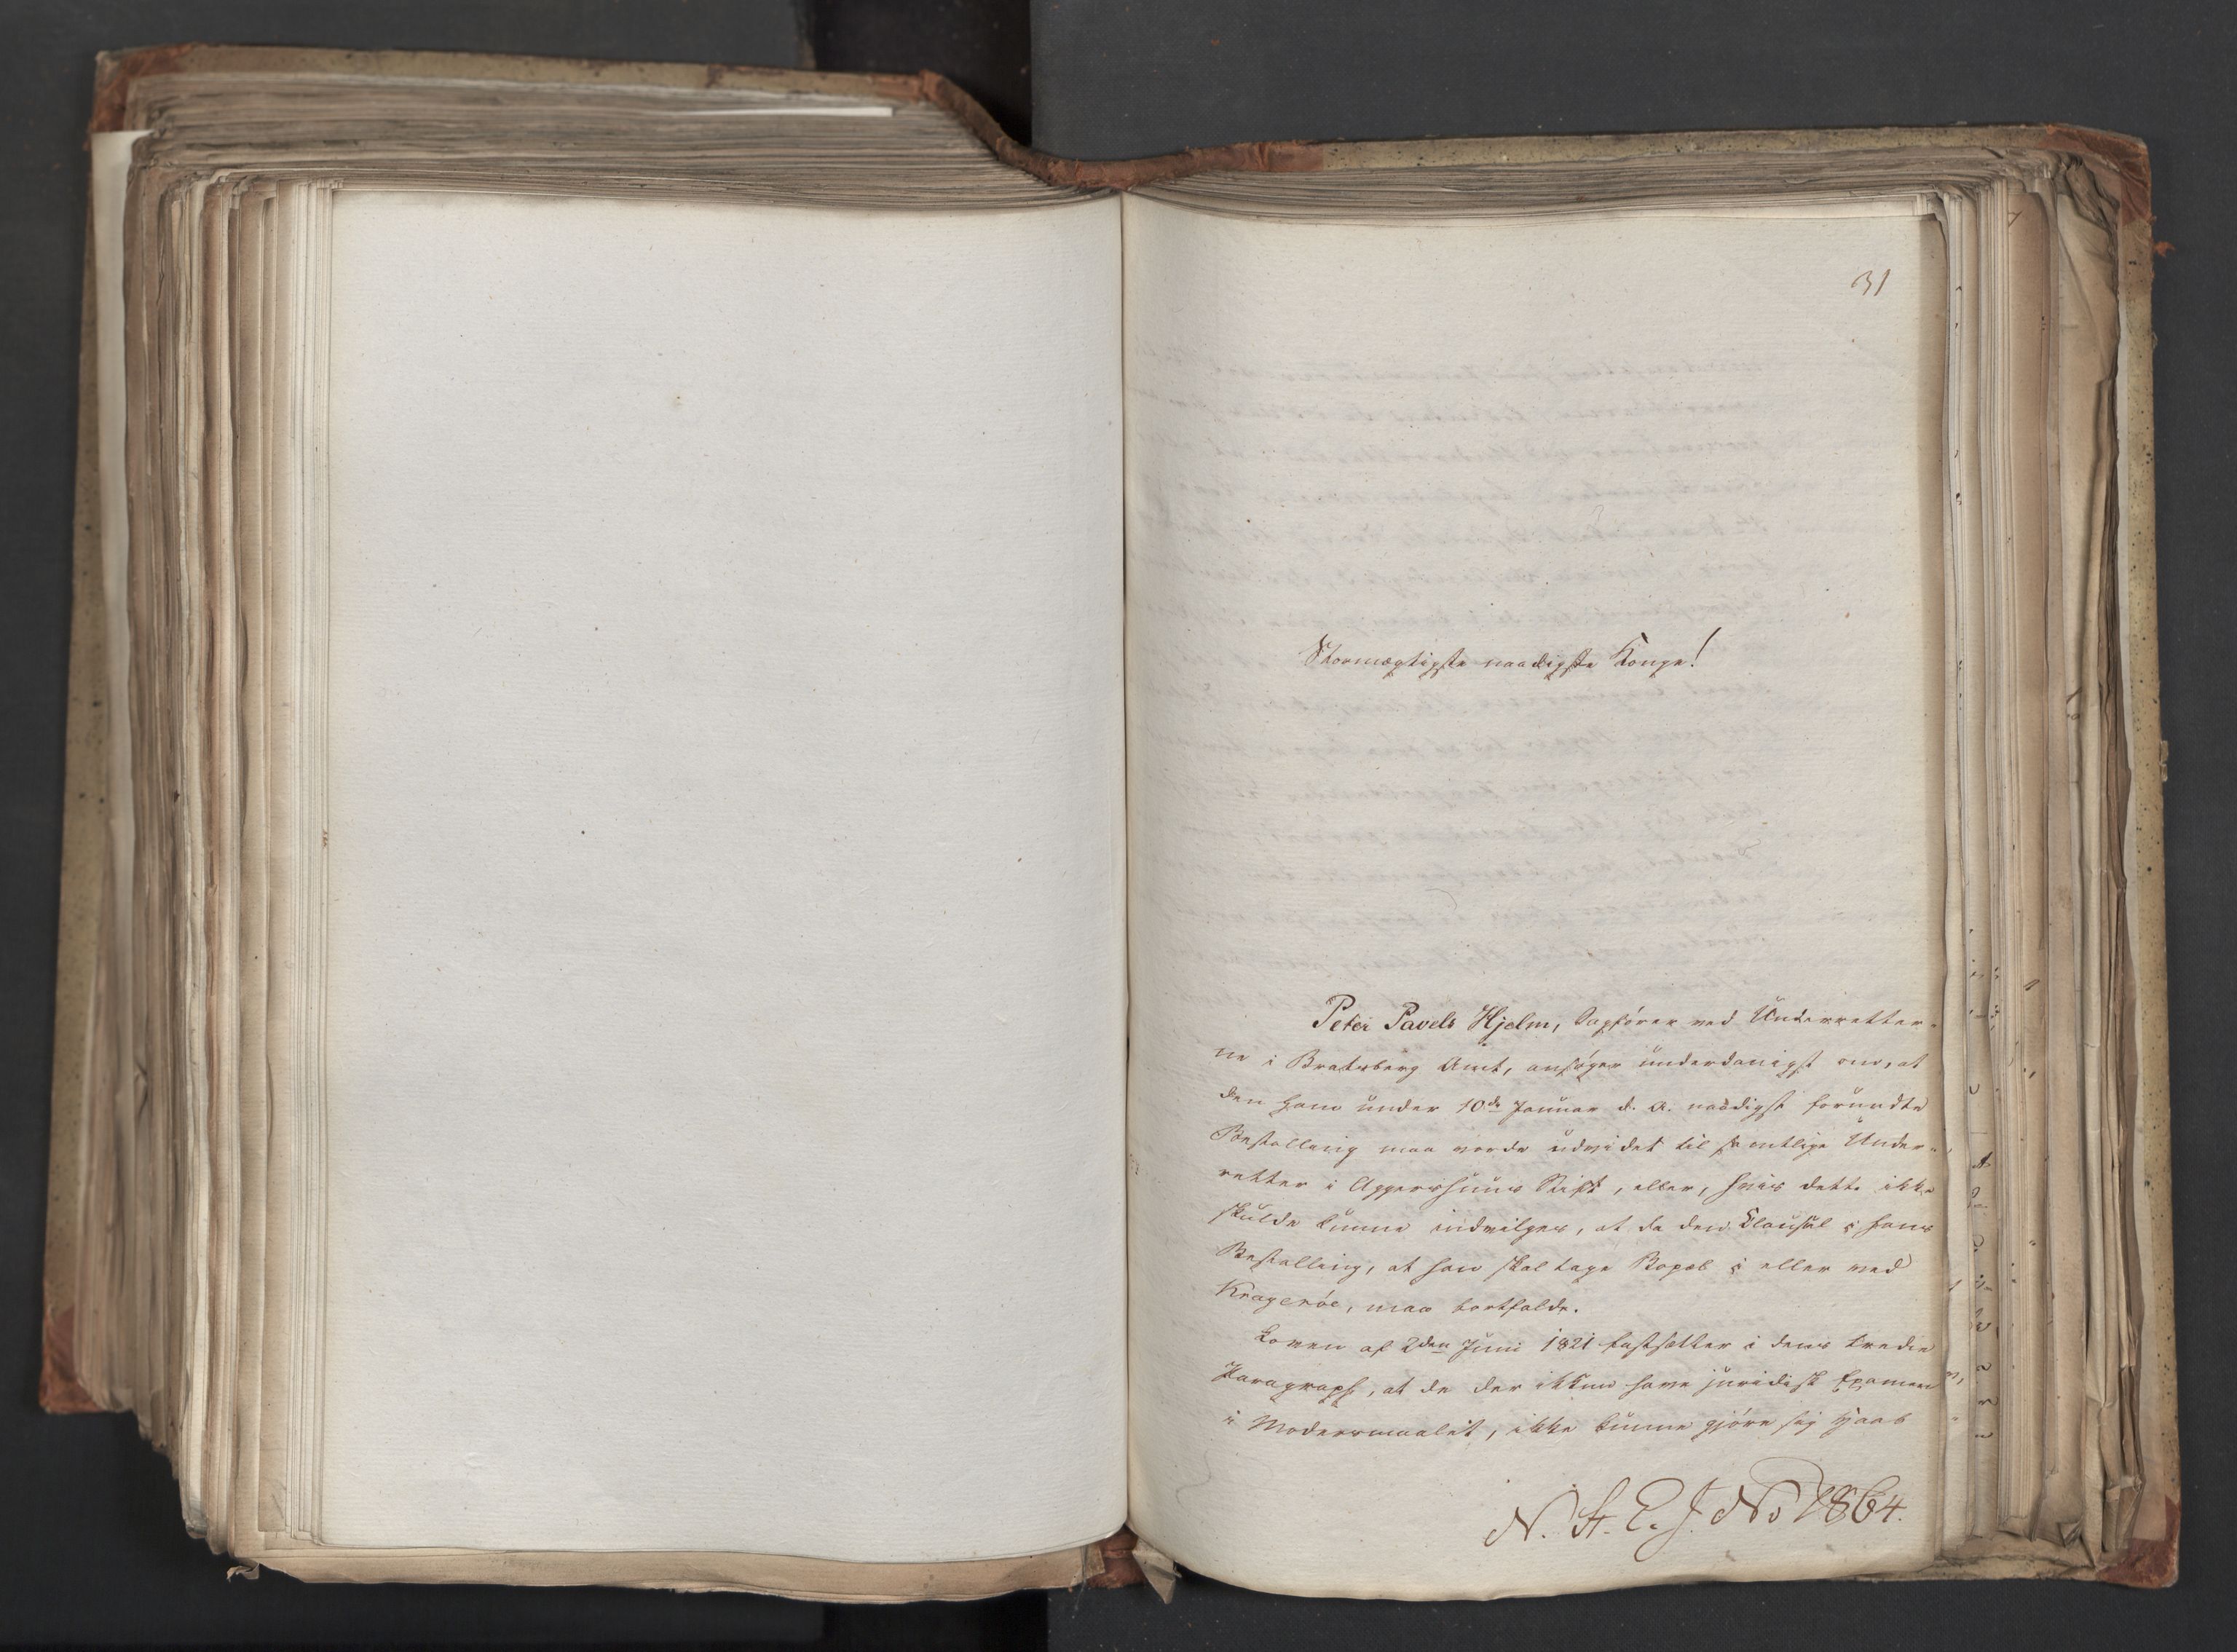 31
Stormægtigste naadigste Konge!
Peter Pavels Hjelm, Sagfører ved Underretter-
ne i Bratsberg Amt, ansøger underdanigst om, at
den ham under 10de Januar d. A. naadigst forundte
Bestalling maa vorde udvidet til samtlige Under-
retter i Aggershuus Stift, eller, hvis dette ikke
skulde kunne indvilges, at da den Clausul i hans
Bestalling, at han skal tage Bopæl i eller ved
Kragerøe, maa bortfalde.
Loven af 2den Juni 1821 fastsætter i dens tredie
Paragraph, at de der ikkun have juridisk Examen
i Modersmaalet, ikke kunne gjøre sig Haab
N. St. E. J. No 1864.